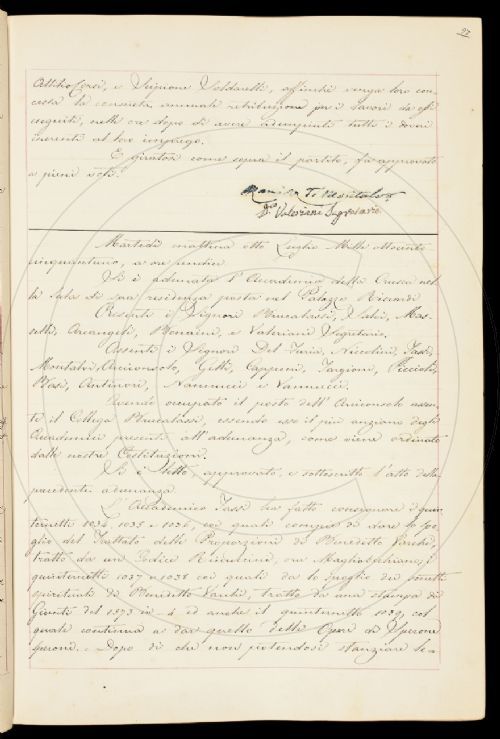 97
Attilio Corsi, e Scipione Soldarelli, affinchè venga loro con-
cessa la consueta annuale retribuzione per i lavori da essi
eseguiti, nelle ore dopo di avere adempiuti tutti i doveri
inerenti al loro impiego.
E girato come sopra il partito, fu approvato
a pieni voti.
D. Valeriani Segretario
Martedì mattina otto Luglio Mille ottocento
cinquantuno, a ore
Si è adunata l'Accademia della Crusca nel-
la Sala di sua residenza posta nel Palazzo Riccardi
Presenti i Signori Brucalassi, Mas-
selli, Arcangeli, Bonaini, e Valeriani Segretario.
Assenti i Signori Del Furia, Niccolini, Tassi,
Montalvi Arciconsolo, Capponi, Targioni,
Antinori, Nannucci e Vannucci.
Avendo occupato il posto dell'Arciconsolo assen-
te il Collega Brucalassi, essendo esso il più anziano degli
Accademici presenti all'adunanza, come viene ordinato
dalle nostre Costituzioni.
Si è letto, approvato, e sottoscritto l'atto della
precedente adunanza.
L'Accademico Tassi ha fatto consegnare i quin-
ternetti 1034, 1035 e 1036, coi quali compie di dare lo spo-
glio del Trattato delle Proporzioni di Benedetto Varchi,
tratto da un Codice Rinucciniano, ora Magliabechiano; i
quinternetti 1037 e 1038 coi quali da lo spoglio dei Sonetti
spirituali di Benedetto Varchi, tratto da una stampa di
Giunti del 1573 in 4 ed anche il quinternetto 1039, col
quale continua a dar quello delle Opere di Sperone
Speroni. Dopo di che non potendosi stanziare le